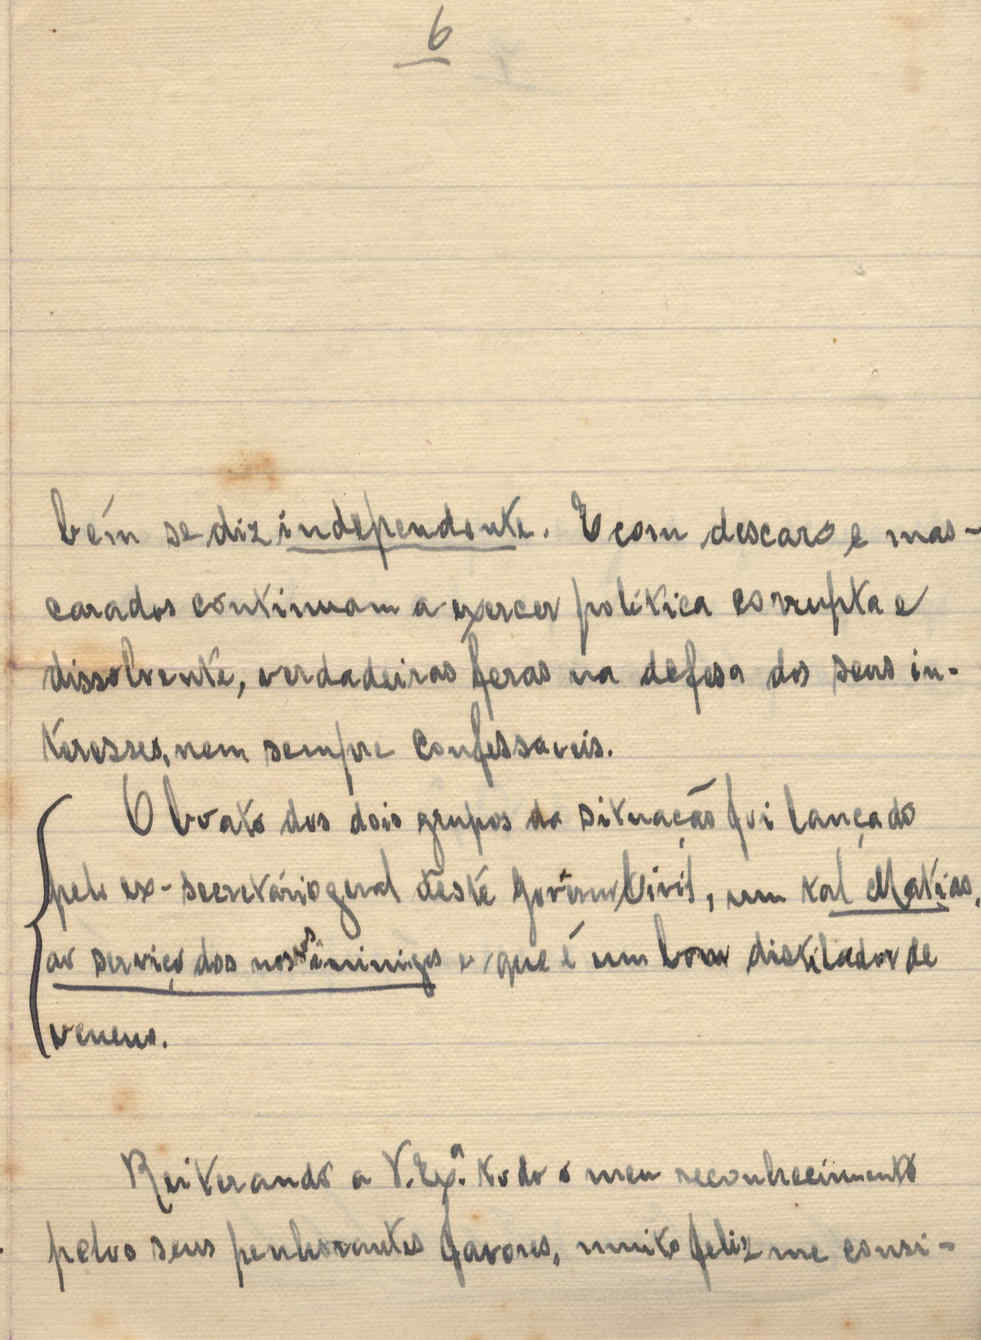 6
bém se diz independente. E com descaro e mas-
carados continuam a exercer política corrupta e
dissolvente, verdadeiras feras na defesa dos seus in-
teresses, nem sempre confessaveis.
O boato dos dois grupos da situação foi lançado
pelo ex-secretário geral dêste Govêrno Civil, um tal Matias,
ao serviço dos nossos inimigos e que é um bom distilador de
veneno.
Reiterando a V. Ex.ª todo o meu reconhecimento
pelos seus penhorantes favores, muito feliz me consi-